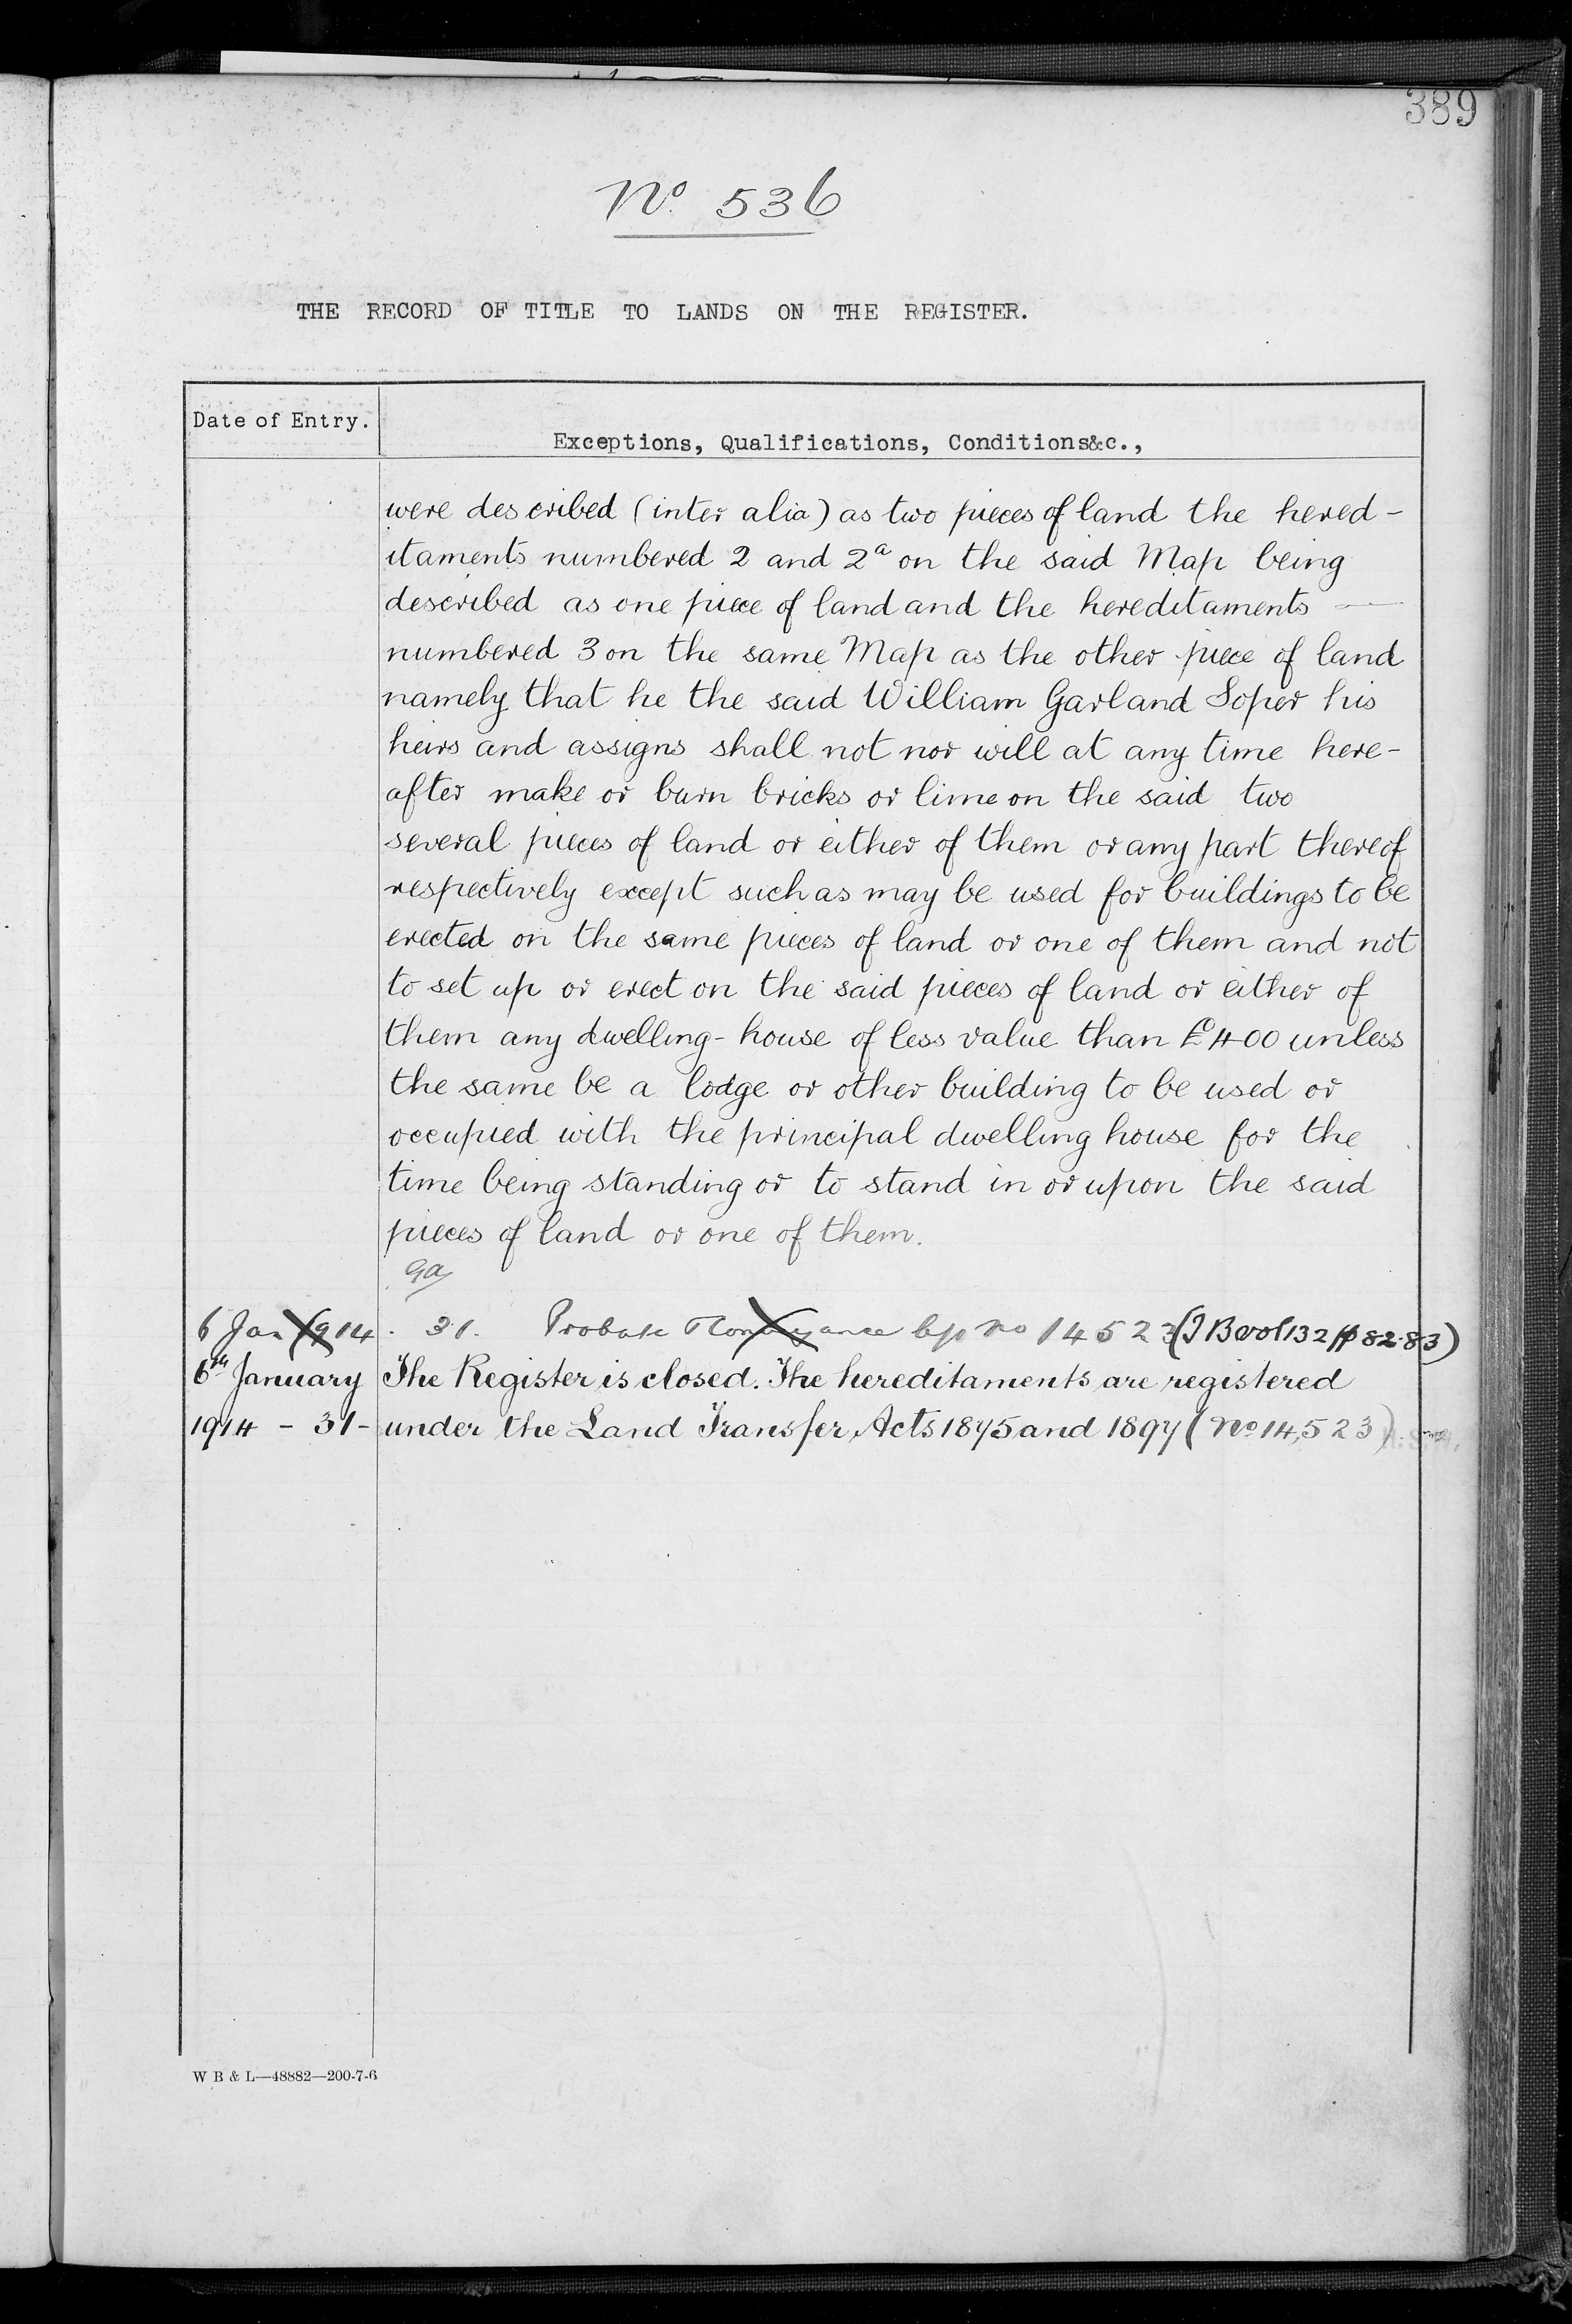 389
No. 536
THE RECORD OF TITLE TO LANDS ON THE REGISTER.
Date of Entry.
Exceptions, Qualifications, Conditions&c.,
were described (inter alia) as two pieces of land the hered-
itaments numbered 2 and 2a on the said Map being
described as one piece of land and the hereditaments —
numbered 3 on the same Map as the other piece of land
namely that he the said William Garland Soper his
heirs and assigns shall not nor will at any time here-
after make or burn bricks or lime on the said two
several pieces of land or either of them or any part thereof
respectively except such as may be used for buildings to be
erected on the same pieces of land or one of them and not
to set up or erect on the said pieces of land or either of
them any dwelling-house of less value than £400 unless
the same be a lodge or other building to be used or
occupied with the principal dwelling house for the
time being standing or to stand in or upon the said
pieces of land or one of them.
6 Jan 1914. 31. Probate Conveyance no 14523 (I B vol 132 pp 82-83)
6th January The Register is closed. The hereditaments are registered
1914 - 31 - under the Land Transfer Acts 1875 and 1897 (No 14,523)
W B & L—48882—200-7-6